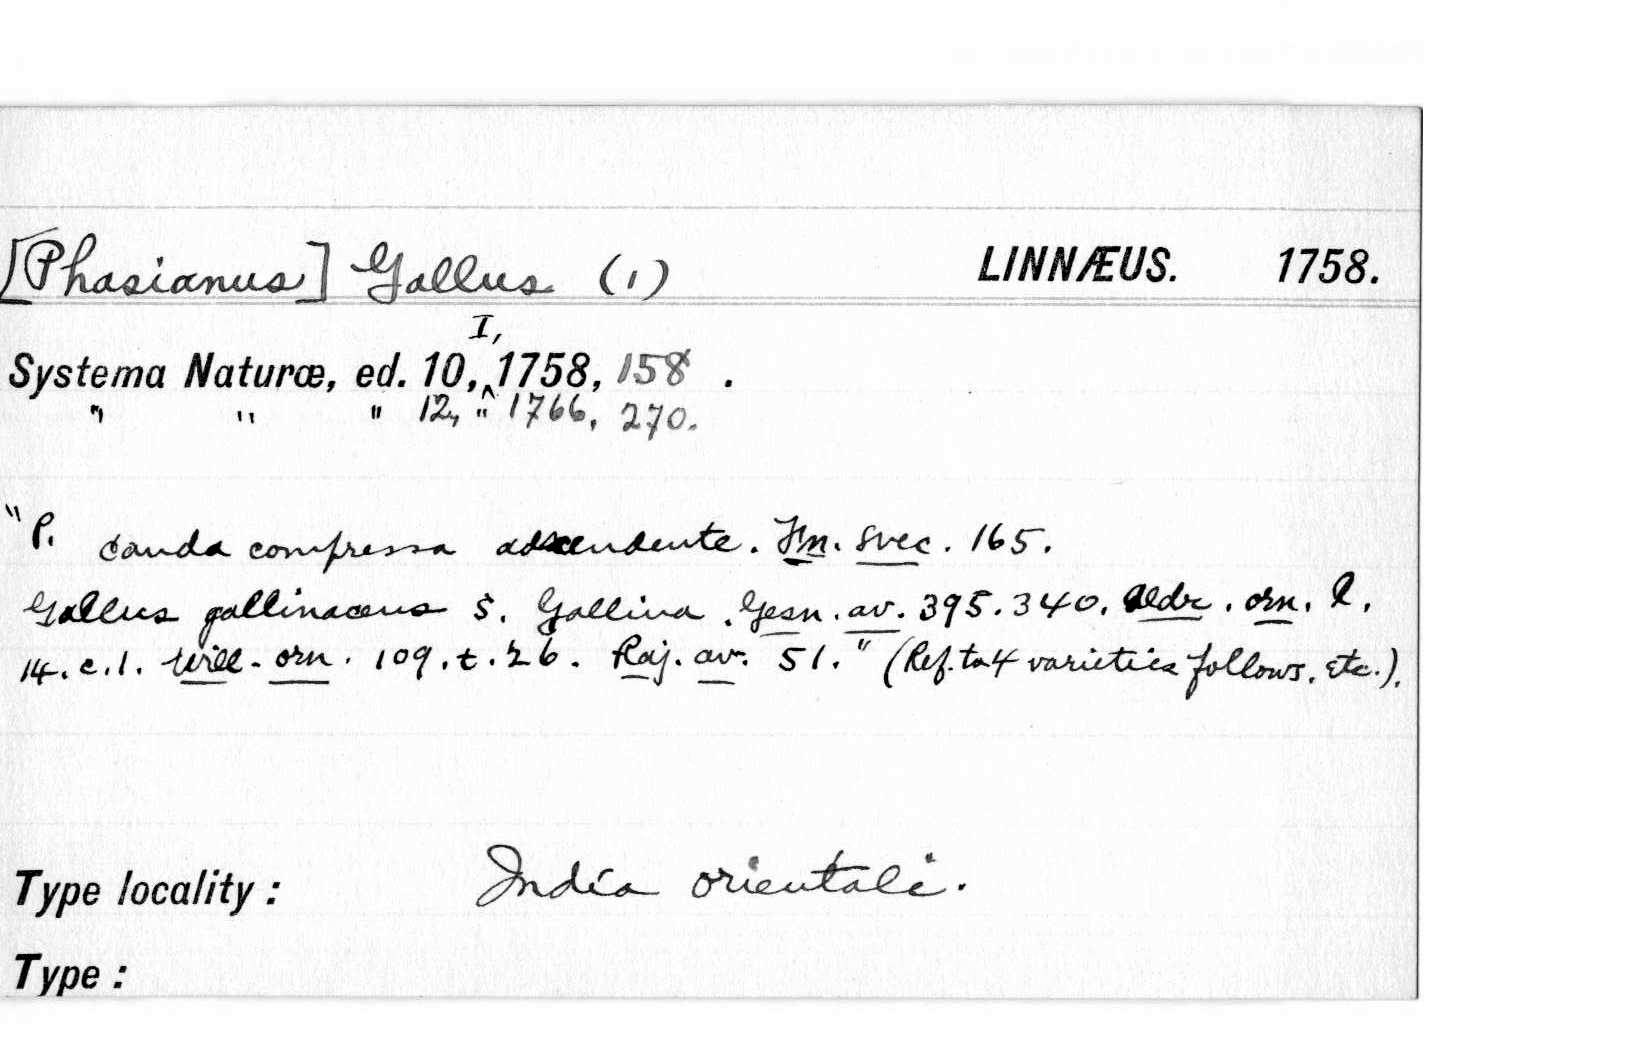 [Phasianus] Gallus (1) LINNÆUS. 1758.
Systema Naturæ, ed. 10, I, 1758, 158.
" " " 12, " 1766, 270.
"P. cauda compressa adscendente. Fn. svec. 165.
Gallus gallinaceus s. Gallina. Gesn. av. 395. 340. Aldr. orn. l.
14. c. 1. Will. orn. 109. t. 26. Raj. av. 51." (Ref. to 4 varieties follows, etc.).
Type locality: India orientali.
Type: